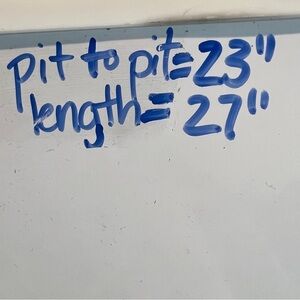 pit to pit=23"
length=27"